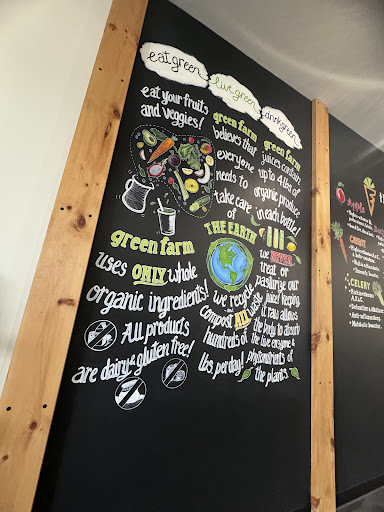 eat green
live green
drink green
eat your fruits
and veggies!
green farm
uses ONLY whole
organic ingredients!
All products
are dairy & gluten free!
green farm
believes that
everyone
needs to
take care
of
THE EARTH
we recycle
compost ALL waste
hundreds of
lbs. per day!
green farm
juices contain
up to 4 lbs of
organic produce
in each bottle!
we NEVER
treat or
pasturize our
juice! keeping
it raw allows
the body to absorb
the live enzyme &
phytonutrients of
the plants
Apple
CARROT
CELERY